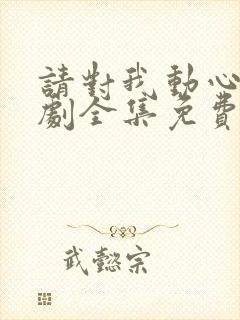 請對我動心
劇全集免費
武懿宗